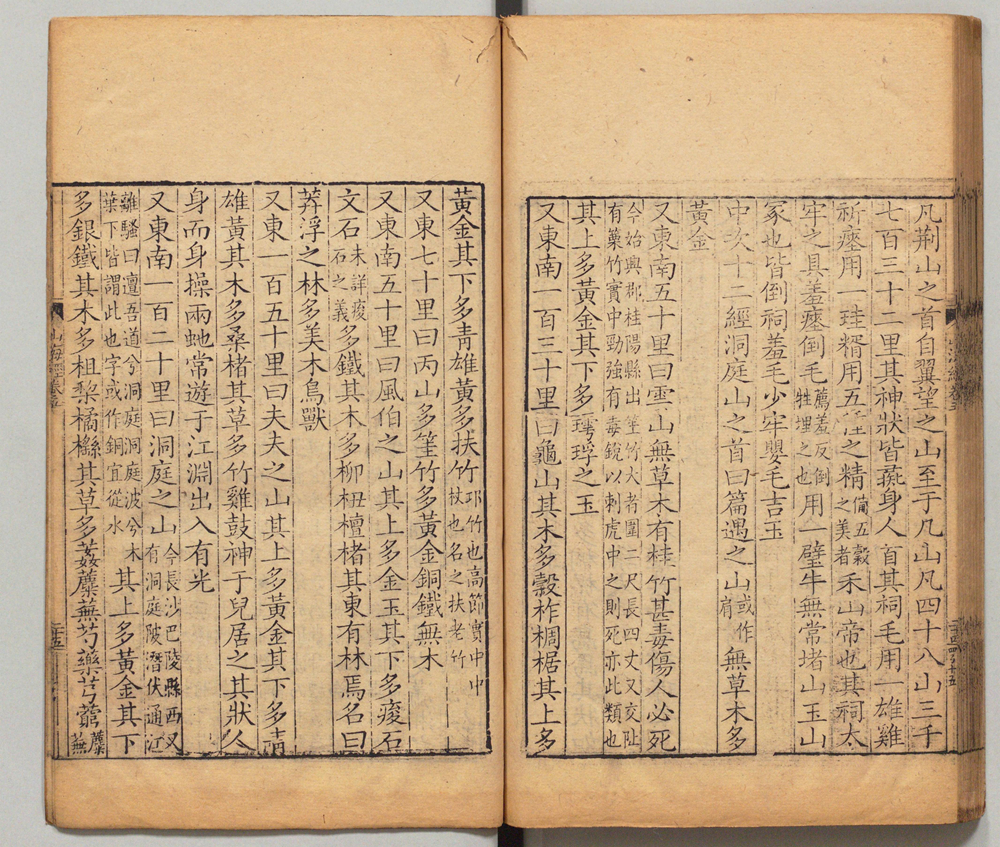 凡荆山之首自翼望之山至于凡山凡四十八山三千
七百三十二里其神狀皆彘身人首其祠毛用一雄雞
祈瘞用一珪糈用五種之精備五穀之美者禾山帝也其祠太
牢之具羞瘞倒毛薦羞反倒牲埋之也用一璧牛無常堵山玉山
冢也皆倒祠羞毛少牢嬰毛吉玉
中次十二經洞庭山之首曰篇遇之山或作肩無草木多
黃金
又東南五十里曰雲山無草木有桂竹甚毒傷人必死
今始興郡桂陽縣出筀竹大者圍二尺長四丈又交阯
有篥竹實中勁強有毒銳以刺虎中之則死亦此類也
其上多黃金其下多㻬琈之玉
又東南一百三十里曰龜山其木多榖柞椆椐其上多
黃金其下多青雄黃多扶竹邛竹也高節實中中杖也名之扶老竹
又東七十里曰丙山多筀竹多黃金銅鐵無木
又東南五十里曰風伯之山其上多金玉其下多痠石
文石未詳痠石之義多鐵其木多柳杻檀楮其東有林焉名曰
莽浮之林多美木鳥獸
又東一百五十里曰夫夫之山其上多黃金其下多青
雄黃其木多桑楮其草多竹雞鼓神于兒居之其狀人
身而身操兩虵常遊于江淵出入有光
又東南一百二十里曰洞庭之山今長沙巴陵縣西又有洞庭陂潛伏通江
離騷曰邅吾道兮洞庭洞庭波兮木
葉下皆謂此也字或作銅宜從水其上多黃金其下
多銀鐵其木多柤梨橘櫾其草多葌蘪蕪芍藥芎藭蘪蕪
山海經卷五
二十五